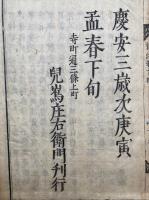 慶安三歳次庚寅
孟春下旬
寺町通三條上町
兒嶌庄右衛門刊行